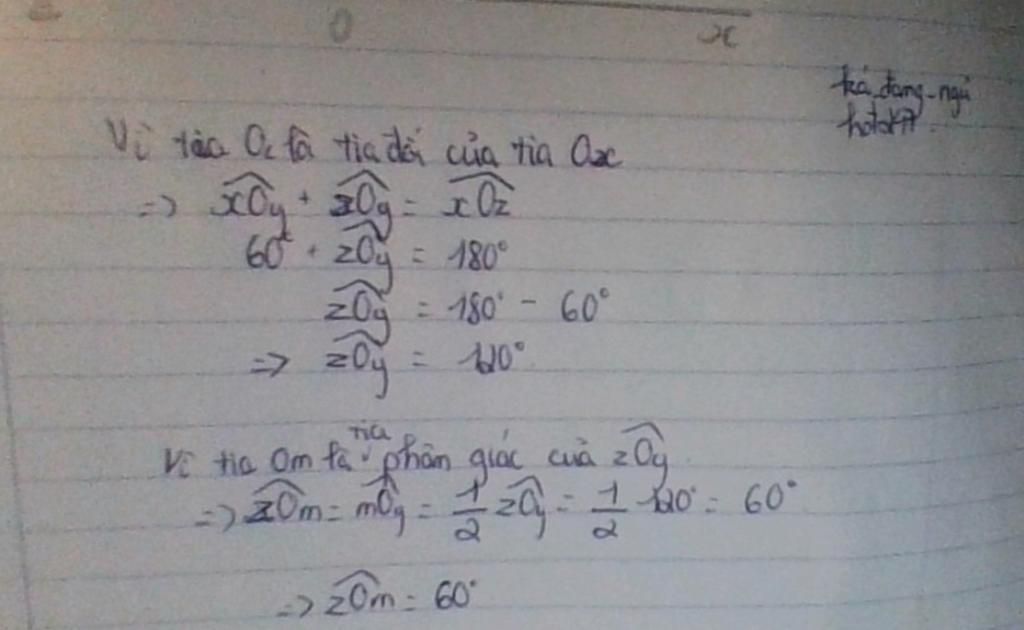 O x
Vì tia Oz là tia đối của tia Ox
=> xOy + zOy = xOz
60° + zOy = 180°
zOy = 180° - 60°
=> zOy = 120°
Vì tia Om là tia phân giác của zOy
=> zOm = mOy = 1/2 zOy = 1/2 120° = 60°
=> zOm = 60°